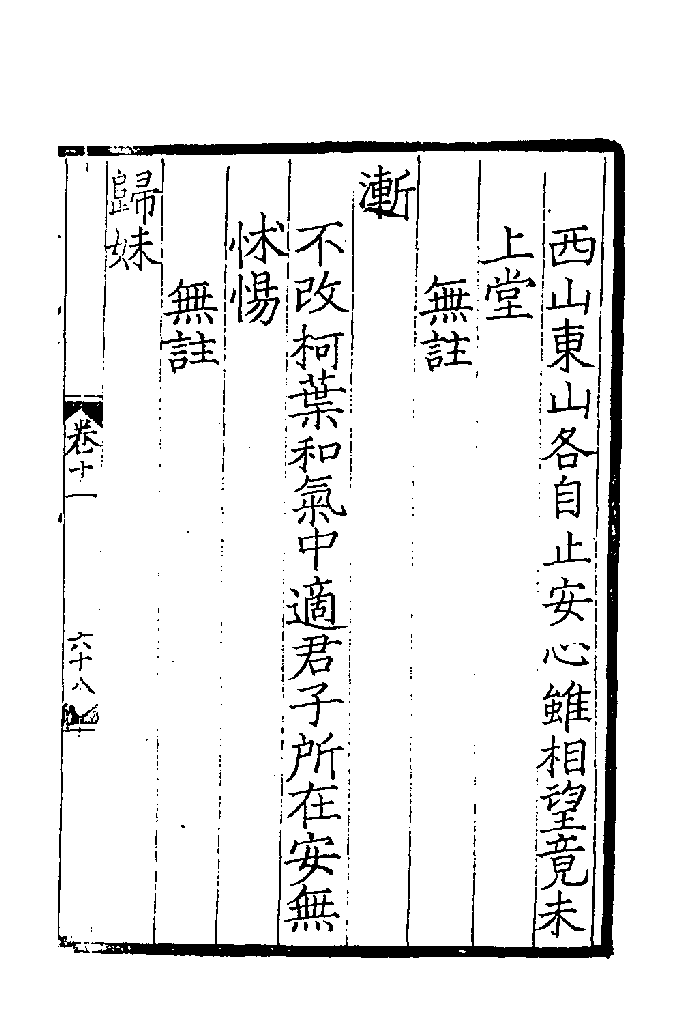 西山東山各自止安心雖相望竟未
上堂
無註
漸
不改柯葉和氣中適君子所在安無
怵惕
無註
歸妹
卷十一
六十八